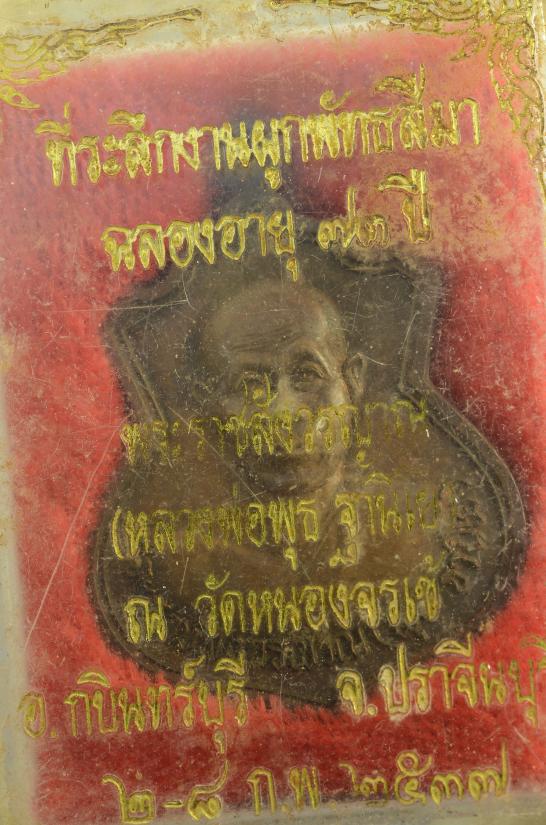 ที่ระลึกงานผูกพัทธสีมา
ฉลองอายุ ๗๓ ปี
พระราชสังวรญาณ
(หลวงพ่อพุธ ฐานิโย)
ณ วัดหนองจรเข้
อ.กบินทร์บุรี จ.ปราจีนบุรี
๒-๘ ก.พ. ๒๕๓๗